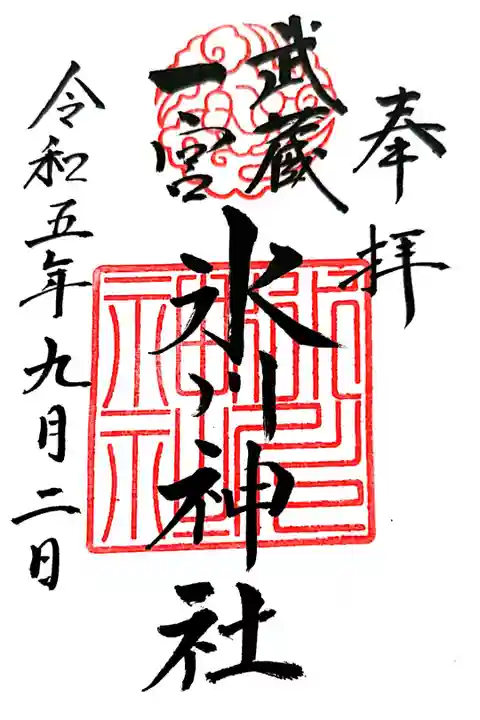 奉拝
武蔵
一宮
氷川神社
令和五年九月二日
氷川神社